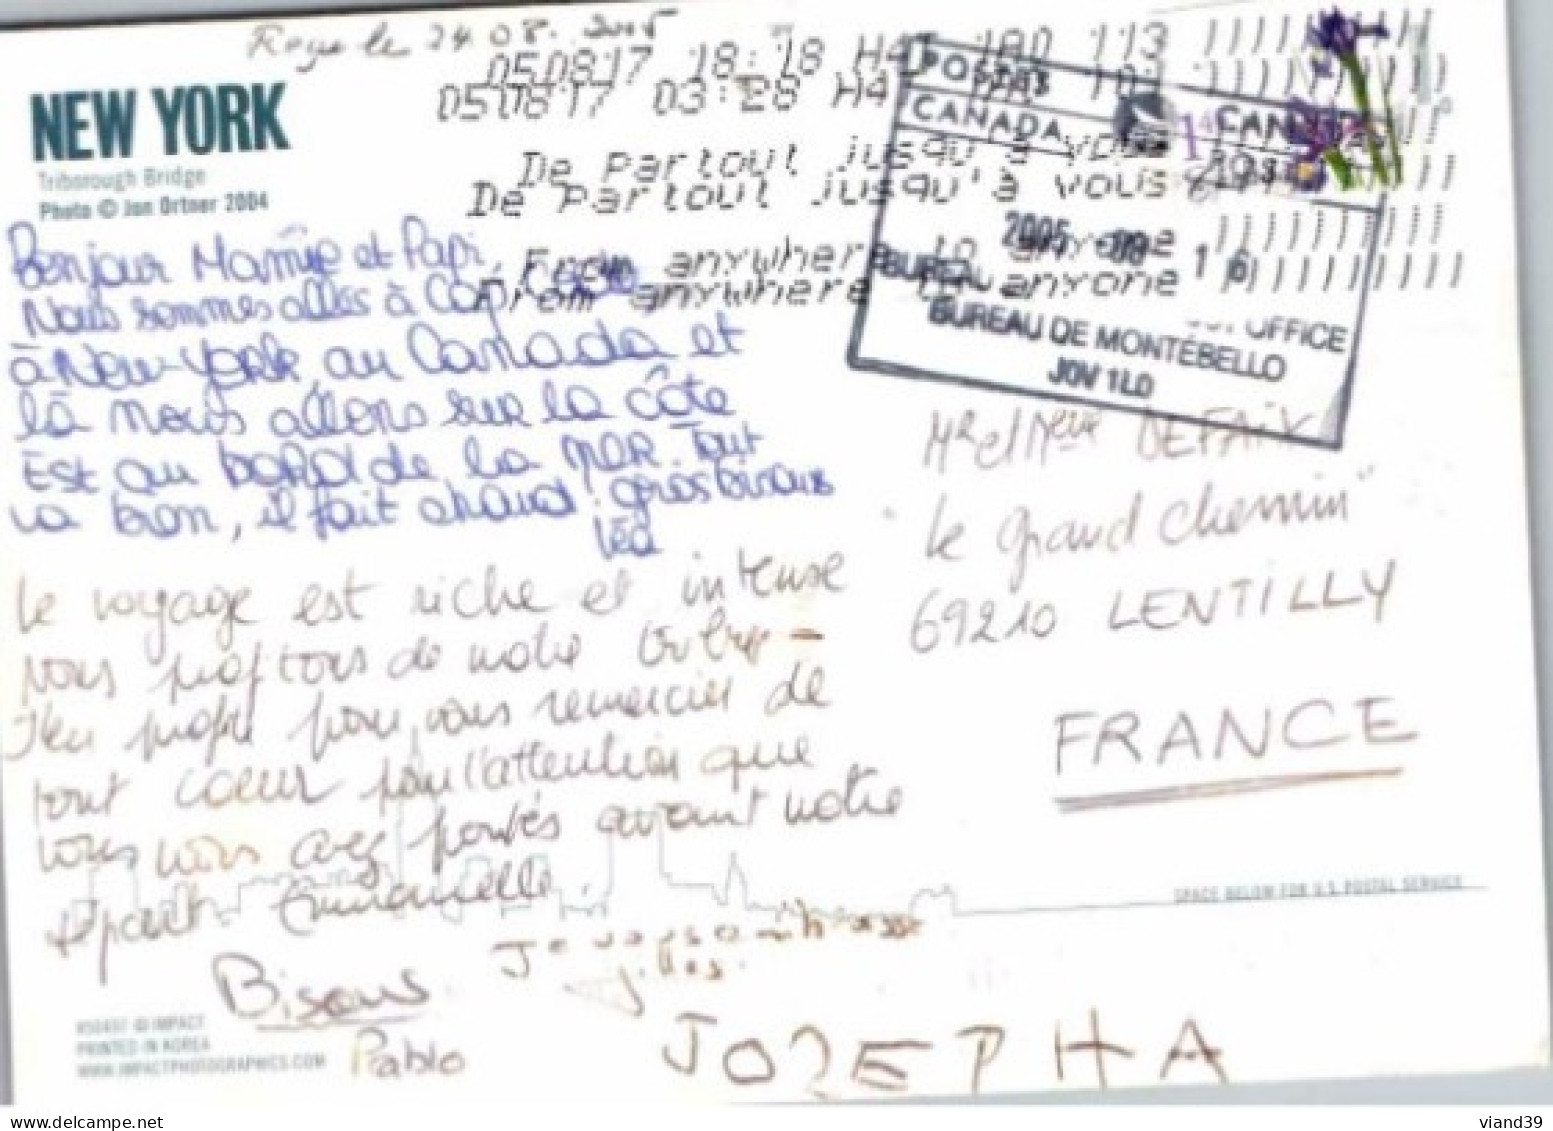 Reçu le 24.08.2005
NEW YORK
Triborough Bridge
Photo © Jon Ortner 2004
050817 18:18 H4T 1A0 113
050817 03:28 H4
De partout jusqu'à vous
De partout jusqu'à vous
From anywhere to anyone
From anywhere to anyone
POSTES CANADA
CANADA POST
2005 -08- 16
BUREAU
POST OFFICE
BUREAU DE MONTÉBELLO
J0V 1L0
Bonjour Mamie et Papi,
Nous sommes allés à Cap
à New-york au Canada et
là nous allons sur la côte
Est au bord de la mer. Tout
va bien, il fait chaud. gros bisous
Léa
Le voyage est riche et intense
Nous profitons de notre
J'en profite pour vous remercier de
tout coeur pour l'attention que
vous nous avez portés avant notre
départ. Emmanuelle.
Bisous
Pablo
Je vous embrasse
Gilles.
JOZEPHA
Mr et Mme DEFAIX
"Le Grand Chemin"
69210 LENTILLY
FRANCE
SPACE BELOW FOR U.S. POSTAL SERVICE
© IMPACT
PRINTED IN KOREA
WWW.IMPACTPHOTOGRAPHICS.COM
viand39